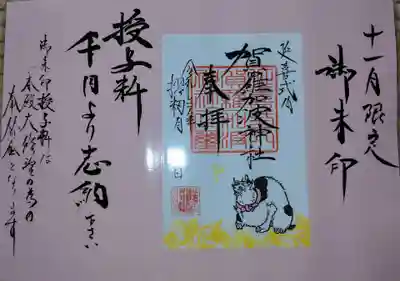 十一月限定
御朱印
延喜式内
賀羅加波神社
奉拝
月 日
授与料
千円より志納下さい
御朱印授与料は
本殿大修理の為の
となります